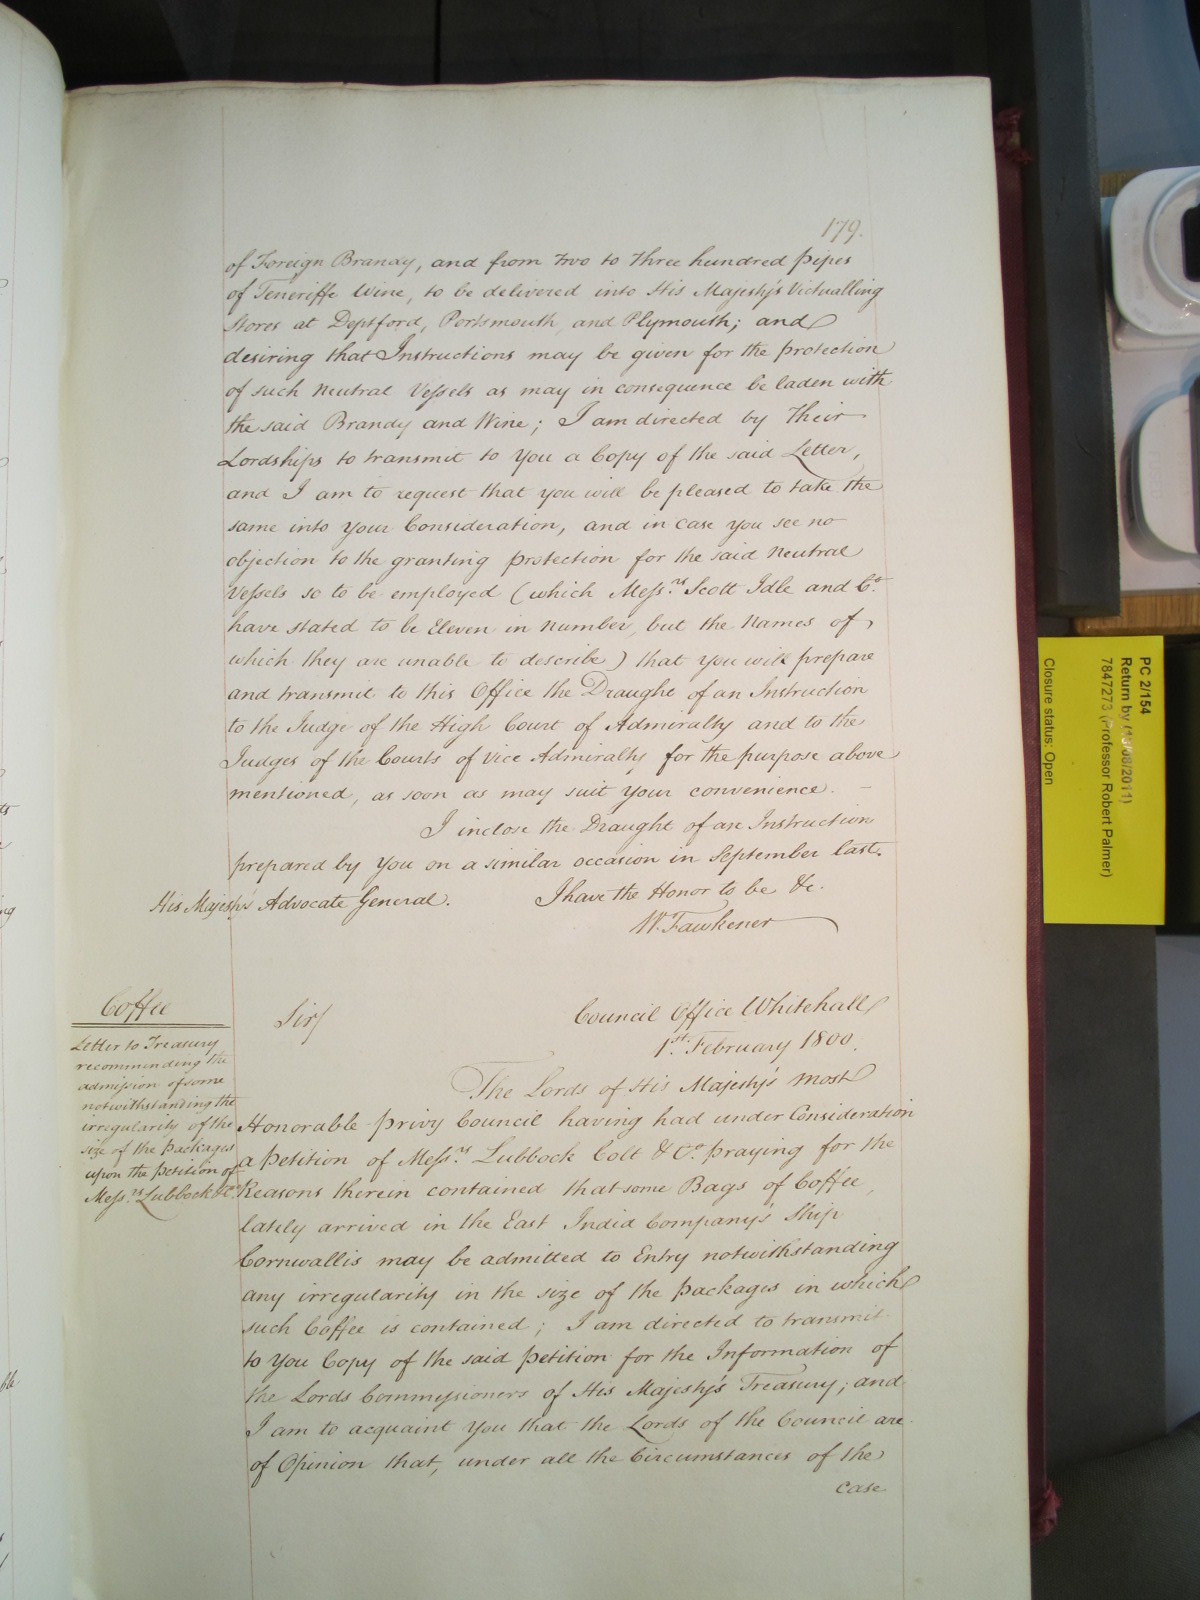 179.
of Foreign Brandy, and from two to three hundred pipes
of Teneriffe Wine, to be delivered into His Majesty's Victualling
Stores at Deptford, Portsmouth, and Plymouth; and
desiring that Instructions may be given for the protection
of such Neutral Vessels as may in consequence be laden with
the said Brandy and Wine; I am directed by Their
Lordships to transmit to You a Copy of the said Letter,
and I am to request that you will be pleased to take the
same into Your Consideration, and in case you see no
objection to the granting protection for the said Neutral
Vessels so to be employed (which Mess.rs Scott Idle and Co.
have stated to be Eleven in number, but the Names of
which they are unable to describe) that you will prepare
and transmit to this Office the Draught of an Instruction
to the Judge of the High Court of Admiralty and to the
Judges of the Courts of Vice Admiralty for the purpose above
mentioned, as soon as may suit Your convenience. –
I inclose the Draught of an Instruction
prepared by You on a similar occasion in September last.
I have the Honor to be &c.
His Majesty's Advocate General.
W. Fawkener
Coffee
Letter to Treasury
recommending the
admission of some
notwithstanding the
irregularity of the
size of the packages
upon the petition of
Mess.rs Lubbock & Co.
Sir/
Council Office Whitehall
1st. February 1800.
The Lords of His Majesty's most
Honorable privy Council having had under Consideration
a Petition of Mess.rs Lubbock Colt & Co. praying for the
Reasons therein contained that some Bags of Coffee,
lately arrived in the East India Company's Ship
Cornwallis may be admitted to Entry notwithstanding
any irregularity in the size of the packages in which
such Coffee is contained; I am directed to transmit
to You Copy of the said petition for the Information of
the Lords Commissioners of His Majesty's Treasury; and
I am to acquaint You that the Lords of the Council are
of Opinion that, under all the Circumstances of the
case
PC 2/154
Return by (13/08/2011)
7847273 (Professor Robert Palmer)
Closure status: Open